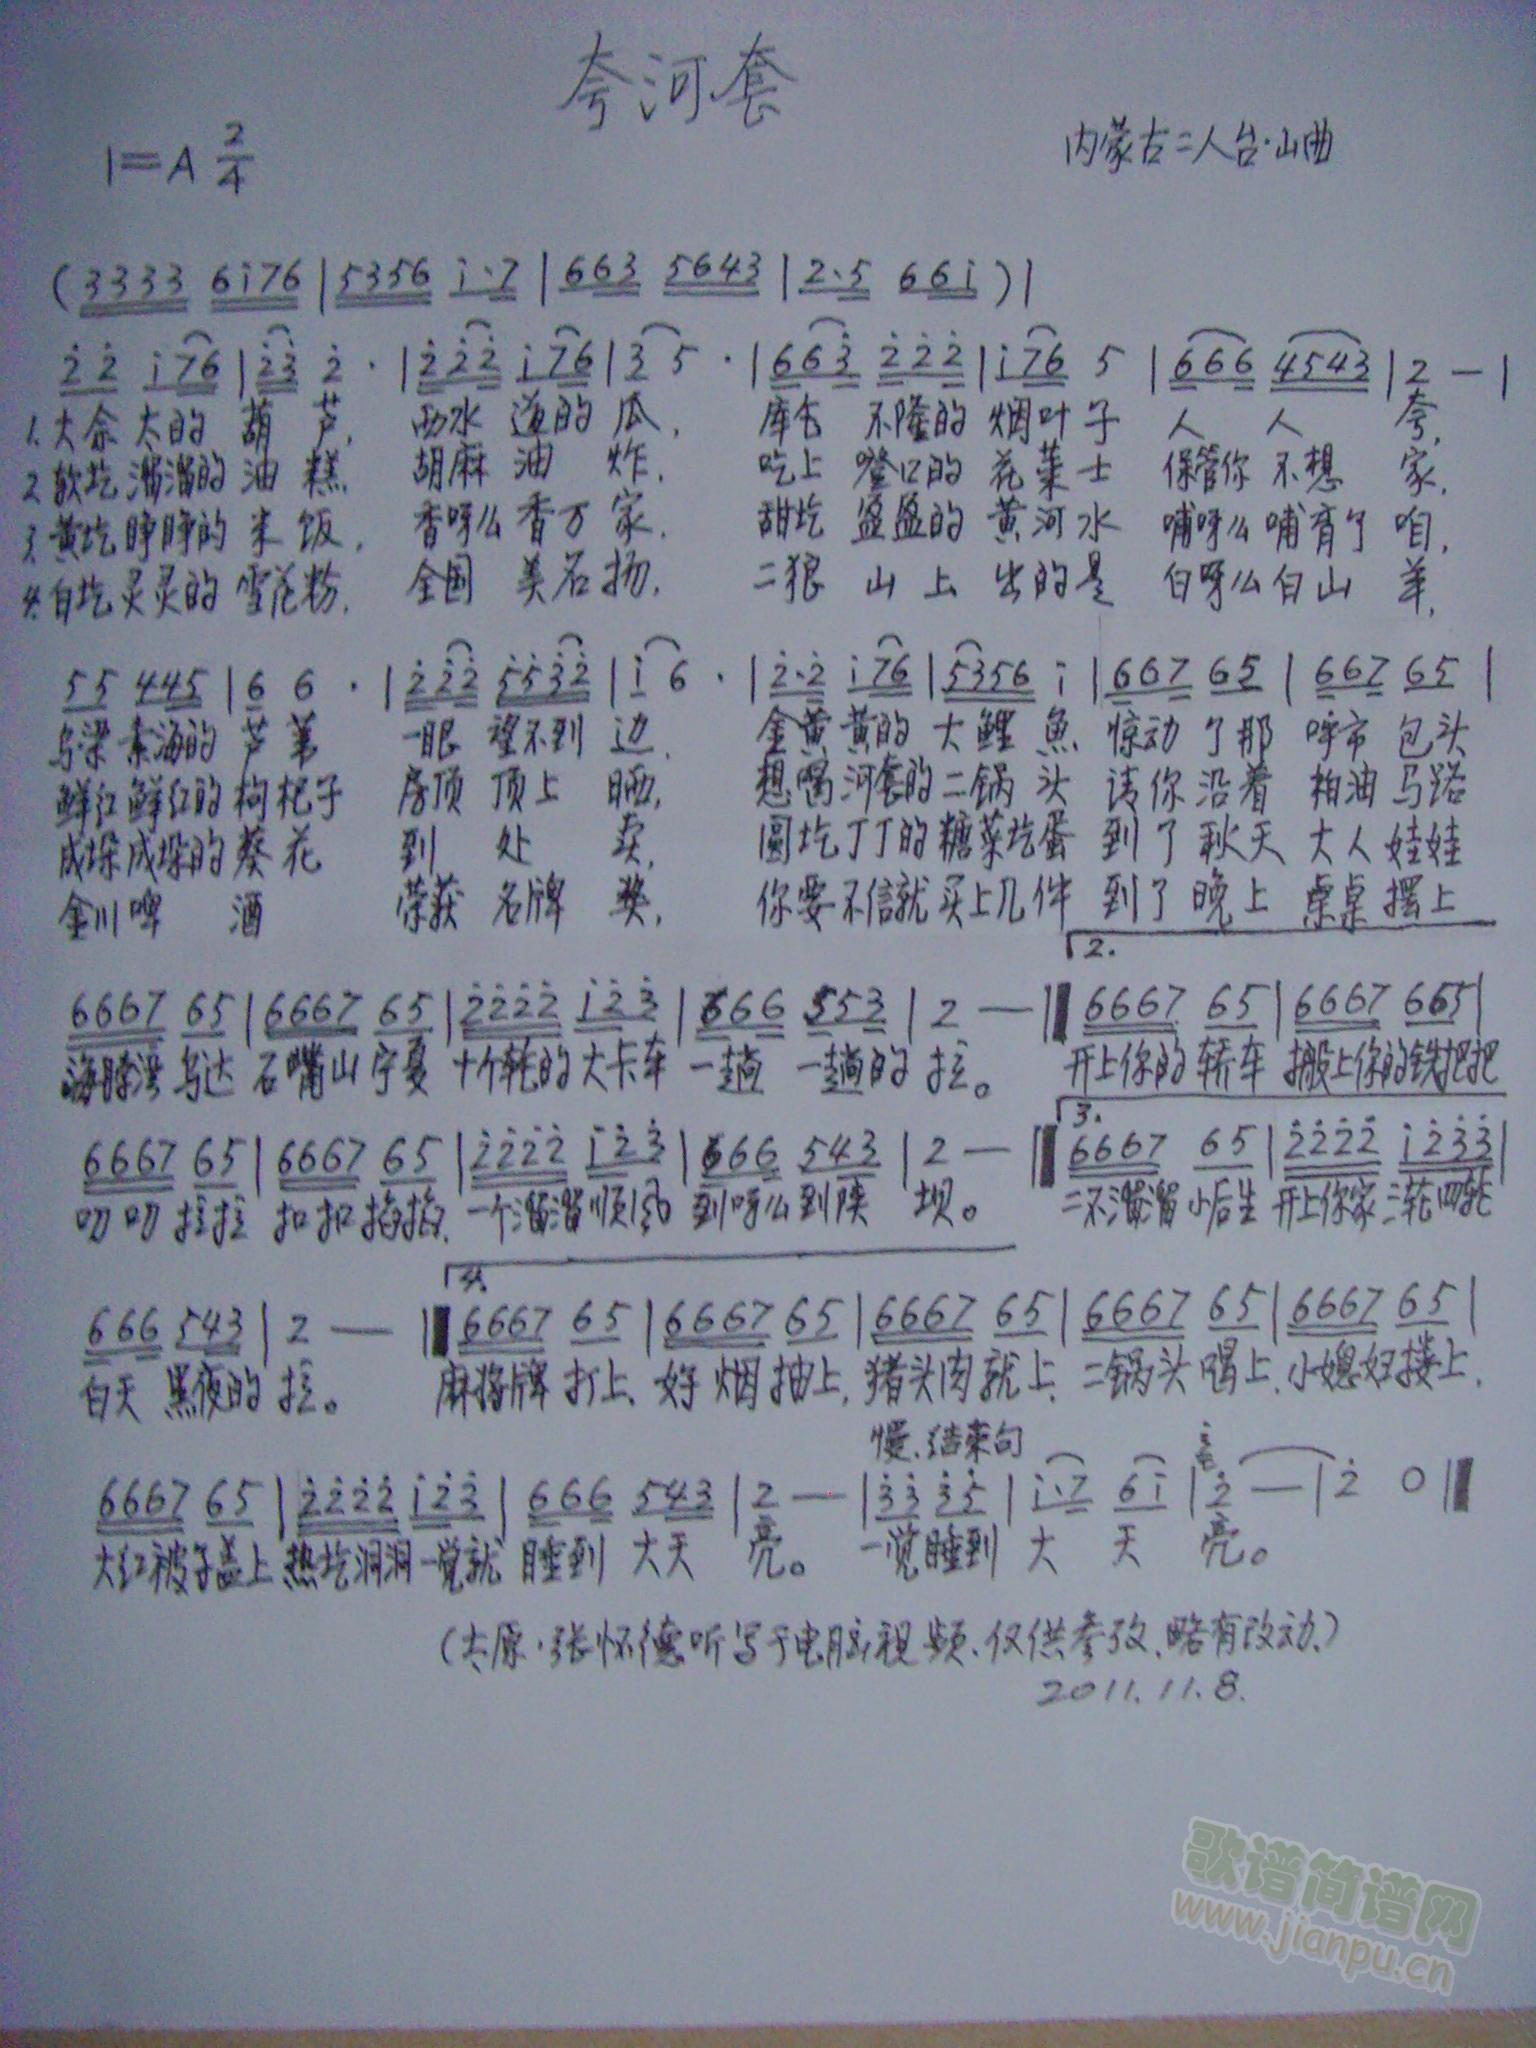 夸河套
1=A 2/4
内蒙古二人台·山曲
(3333 6i76|5356 i·7|663 5643|2·5 66i)|
2̇2̇ i76|2̇3̇ 2̇·|2̇2̇2̇ i76|3 5·|663̇ 2̇2̇2̇|i76 5|666 4543|2 —|
1.大佘太的葫芦,西水道的瓜,库伦不隆的烟叶子人人夸,
2.软圪溜溜的油糕 胡麻油炸,吃上噔口的花莱士 保管你不想家,
3.黄圪睁睁的米饭,香呀么香万家,甜圪盈盈的黄河水 哺呀么哺育了咱,
4.白圪灵灵的雪花粉,全国美名扬,二狼山上出的是 白呀么白山羊,
55 445|6 6·|2̇2̇2̇ 5̇5̇3̇2̇|i 6·|2̇·2̇ i76|5356 i|667 65|667 65|
乌梁素海的芦苇 一眼望不到边,金黄黄的大鲤魚 惊动了那呼市包头
鲜红鲜红的枸杞子 房顶顶上晒,想喝河套的二锅头 请你沿着柏油马路
成垛成垛的葵花 到处卖,圆圪丁丁的糖菜圪蛋 到了秋天大人娃娃
金川啤酒 荣获名牌奖,你要不信就买上几件 到了晚上桌桌摆上
2.
6667 65|6667 65|2̇2̇2̇2̇ i2̇3̇|666 553|2 —|6667 65|6667 665|
海勃湾乌达石嘴山宁夏 十个轮的大卡车一趟一趟的拉。开上你的轿车 搬上你的铁把把
3.
6667 65|6667 65|2̇2̇2̇2̇ i2̇3̇|666 543|2 —|6667 65|2̇2̇2̇2̇ i2̇3̇3̇|
叨叨拉拉 扣扣掐掐,一个溜溜顺风到呀么到陕坝。二不溜溜小后生 开上你家三轮四轮
4.
666 543|2 —|6667 65|6667 65|6667 65|6667 65|6667 65|
白天黑夜的拉。麻将牌打上、好烟抽上,猪头肉就上、二锅头喝上、小媳妇搂上,
慢、结束句
6667 65|2̇2̇2̇2̇ i2̇3̇|666 543|2 —|3̇3̇ 3̇5̇|i·7 6i|2̇ —|2̇ 0|
大红被子盖上 热圪洞洞一觉就睡到大天亮。一觉睡到大天亮。
(太原·张怀德听写于电脑视频、仅供参改、略有改动)
2011.11.8.
歌谱简谱网
www.jianpu.cn